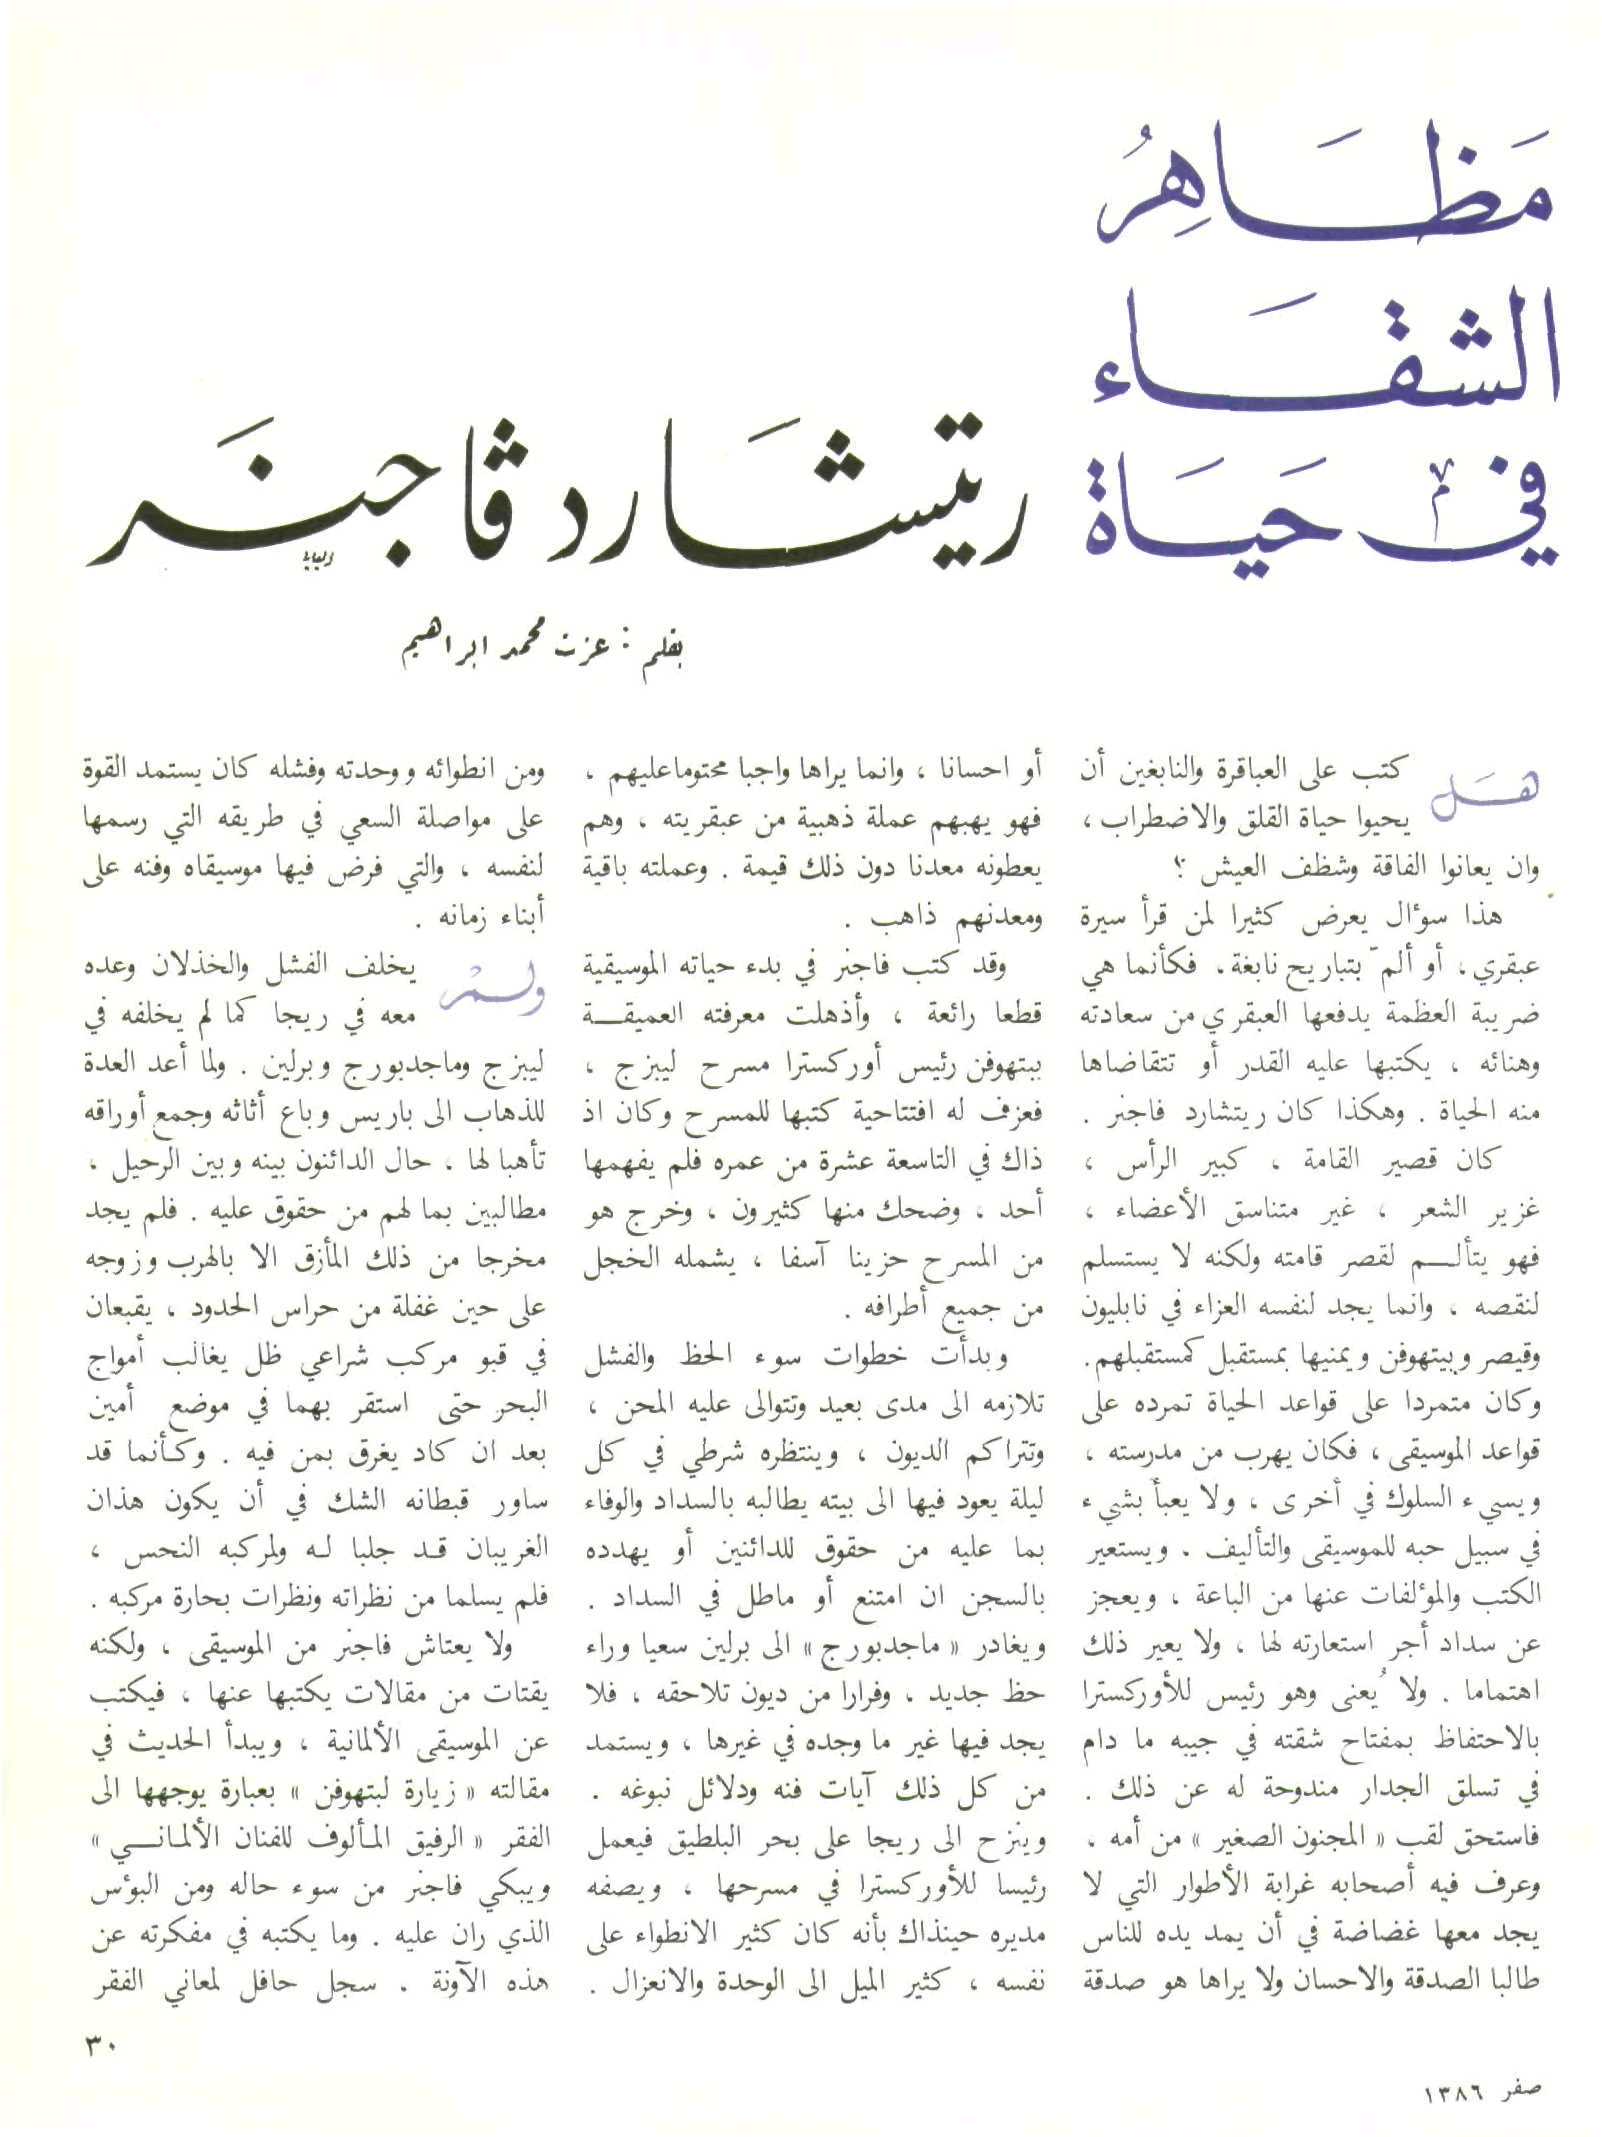 مَظَاهِرُ
الشقَاء
في حَيَاة
ريتشَارد ڤاجنَر
بقلم : عزت محمد ابراهيم
هَل كتب على العباقرة والنابغين أن
يحيوا حياة القلق والاضطراب ،
وان يعانوا الفاقة وشظف العيش ؟
هذا سؤال يعرض كثيرا لمن قرأ سيرة
عبقري ، أو ألمّ بتباريح نابغة ، فكأنما هي
ضريبة العظمة يدفعها العبقري من سعادته
وهنائه ، يكتبها عليه القدر أو تتقاضاها
منه الحياة . وهكذا كان ريتشارد فاجنر .
كان قصير القامة ، كبير الرأس ،
غزير الشعر ، غير متناسق الأعضاء ،
فهو يتألم لقصر قامته ولكنه لا يستسلم
لنقصه ، وانما يجد لنفسه العزاء في نابليون
وقيصر وبيتهوفن ويمنيها بمستقبل كمستقبلهم.
وكان متمردا على قواعد الحياة تمرده على
قواعد الموسيقى ، فكان يهرب من مدرسته ،
ويسيء السلوك في أخرى ، ولا يعبأ بشيء
في سبيل حبه للموسيقى والتأليف . ويستعير
الكتب والمؤلفات عنها من الباعة ، ويعجز
عن سداد أجر استعارته لها ، ولا يعير ذلك
اهتماما . ولا يُعنى وهو رئيس للأوركسترا
بالاحتفاظ بمفتاح شقته في جيبه ما دام
في تسلق الجدار مندوحة له عن ذلك .
فاستحق لقب « المجنون الصغير » من أمه ،
وعرف فيه أصحابه غرابة الأطوار التي لا
يجد معها غضاضة في أن يمد يده للناس
طالبا الصدقة والاحسان ولا يراها هو صدقة
أو احسانا ، وانما يراها واجبا محتوما عليهم ،
فهو يهبهم عملة ذهبية من عبقريته ، وهم
يعطونه معدنا دون ذلك قيمة . وعملته باقية
ومعدنهم ذاهب .
وقد كتب فاجنر في بدء حياته الموسيقية
قطعا رائعة ، وأذهلت معرفته العميقة
ببتهوفن رئيس أوركسترا مسرح ليبزج ،
فعزف له افتتاحية كتبها للمسرح وكان اذ
ذاك في التاسعة عشرة من عمره فلم يفهمها
أحد ، وضحك منها كثيرون ، وخرج هو
من المسرح حزينا آسفا ، يشمله الخجل
من جميع أطرافه .
وبدأت خطوات سوء الحظ والفشل
تلازمه الى مدى بعيد وتتوالى عليه المحن ،
وتتراكم الديون ، وينتظره شرطي في كل
ليلة يعود فيها الى بيته يطالبه بالسداد والوفاء
بما عليه من حقوق للدائنين أو يهدده
بالسجن ان امتنع أو ماطل في السداد .
ويغادر « ماجدبورج » الى برلين سعيا وراء
حظ جديد ، وفرارا من ديون تلاحقه ، فلا
يجد فيها غير ما وجده في غيرها ، ويستمد
من كل ذلك آيات فنه ودلائل نبوغه .
وينزح الى ريجا على بحر البلطيق فيعمل
رئيسا للأوركسترا في مسرحها ، ويصفه
مديره حينذاك بأنه كان كثير الانطواء على
نفسه ، كثير الميل الى الوحدة والانعزال .
ومن انطوائه ووحدته وفشله كان يستمد القوة
على مواصلة السعي في طريقه التي رسمها
لنفسه ، والتي فرض فيها موسيقاه وفنه على
أبناء زمانه .
ولمْ يخلف الفشل والخذلان وعده
معه في ريجا كما لم يخلفه في
ليبزج وماجدبورج وبرلين . ولما أعد العدة
للذهاب الى باريس وباع أثاثه وجمع أوراقه
تأهبا لها ، حال الدائنون بينه وبين الرحيل ،
مطالبين بما لهم من حقوق عليه . فلم يجد
مخرجا من ذلك المأزق الا بالهرب وزوجه
على حين غفلة من حراس الحدود ، يقبعان
في قبو مركب شراعي ظل يغالب أمواج
البحر حتى استقر بهما في موضع أمين
بعد ان كاد يغرق بمن فيه . وكأنما قد
ساور قبطانه الشك في أن يكون هذان
الغريبان قد جلبا له ولمركبه النحس ،
فلم يسلما من نظراته ونظرات بحارة مركبه .
ولا يعتاش فاجنر من الموسيقى ، ولكنه
يقتات من مقالات يكتبها عنها ، فيكتب
عن الموسيقى الألمانية ، ويبدأ الحديث في
مقالته « زيارة لبتهوفن » بعبارة يوجهها الى
الفقر « الرفيق المألوف للفنان الألماني »
ويبكي فاجنر من سوء حاله ومن البؤس
الذي ران عليه . وما يكتبه في مفكرته عن
هذه الآونة . سجل حافل لمعاني الفقر
٣٠
صفر ١٣٨٦